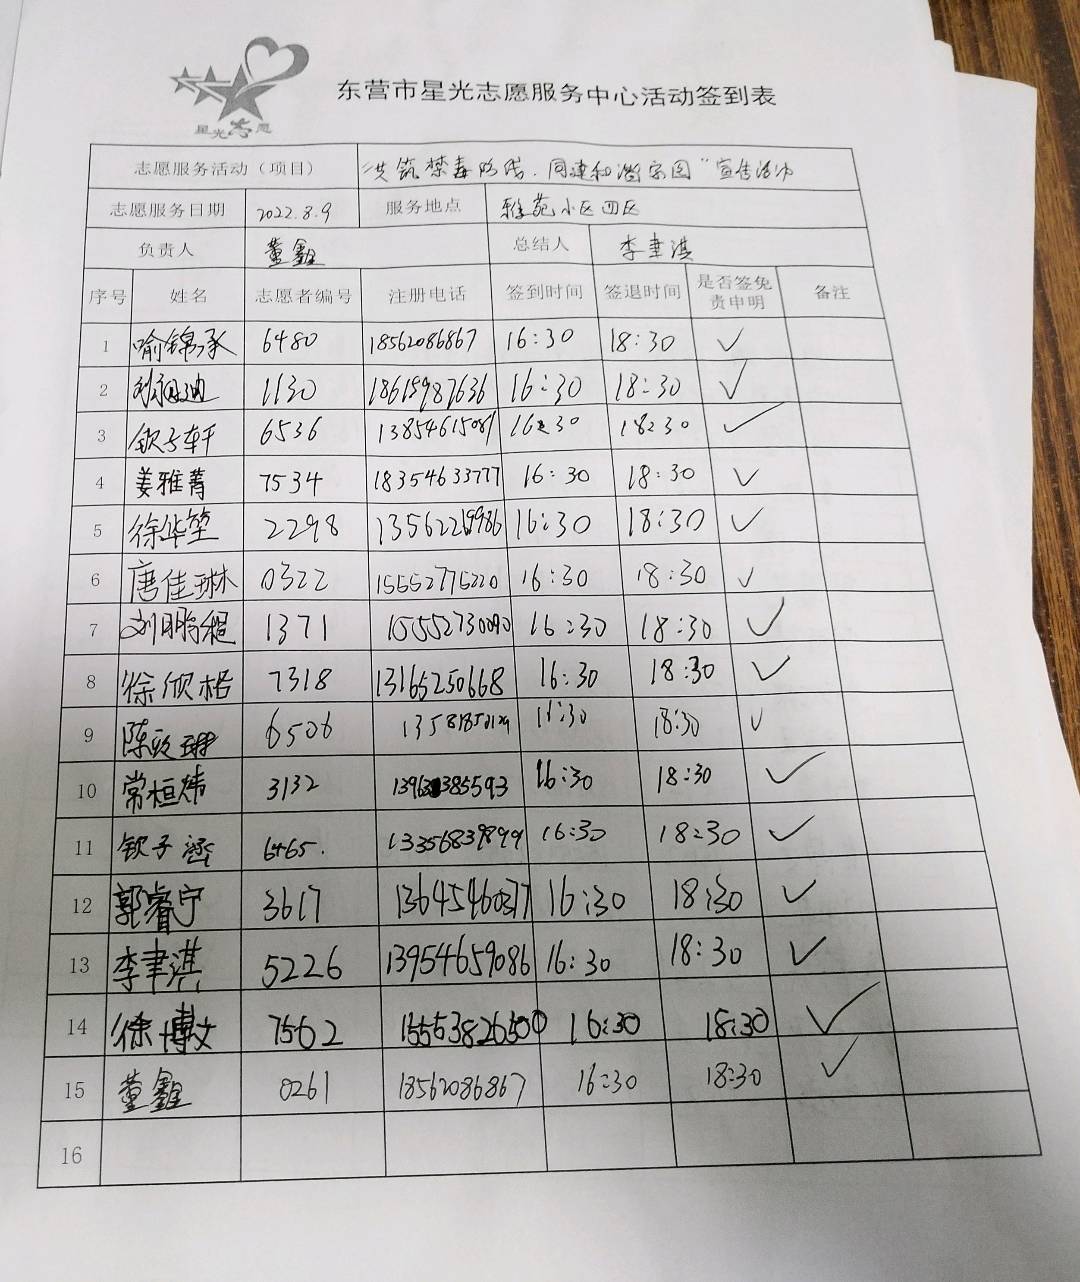 星光志愿
东营市星光志愿服务中心活动签到表
志愿服务活动（项目） “共筑禁毒防线.同建和谐家园”宣传活动
志愿服务日期 2022.8.9 服务地点 雅苑小区四区
负责人 董鑫 总结人 李聿淇
序号 姓名 志愿者编号 注册电话 签到时间 签退时间 是否签免责申明 备注
1 喻锦承 6480 18562086867 16:30 18:30 ✓
2 1130 18615987636 16:30 18:30 ✓
3 钦子轩 6536 13854615081 16:30 18:30 ✓
4 姜雅菁 7534 18354633777 16:30 18:30 ✓
5 徐华堃 2298 16:30 18:30 ✓
6 唐佳琳 0322 15552775220 16:30 18:30 ✓
7 刘鹏程 1371 15552730090 16:30 18:30 ✓
8 徐欣格 7318 13165250668 16:30 18:30 ✓
9 6506 16:30 18:30 ✓
10 常桓炜 3132 16:30 18:30 ✓
11 钦子涵 6465. 13356839899 16:30 18:30 ✓
12 郭睿宁 3617 13645460377 16:30 18:30 ✓
13 李聿淇 5226 13954659086 16:30 18:30 ✓
14 徐博文 7562 15553826500 16:30 18:30 ✓
15 董鑫 0261 18562086867 16:30 18:30 ✓
16